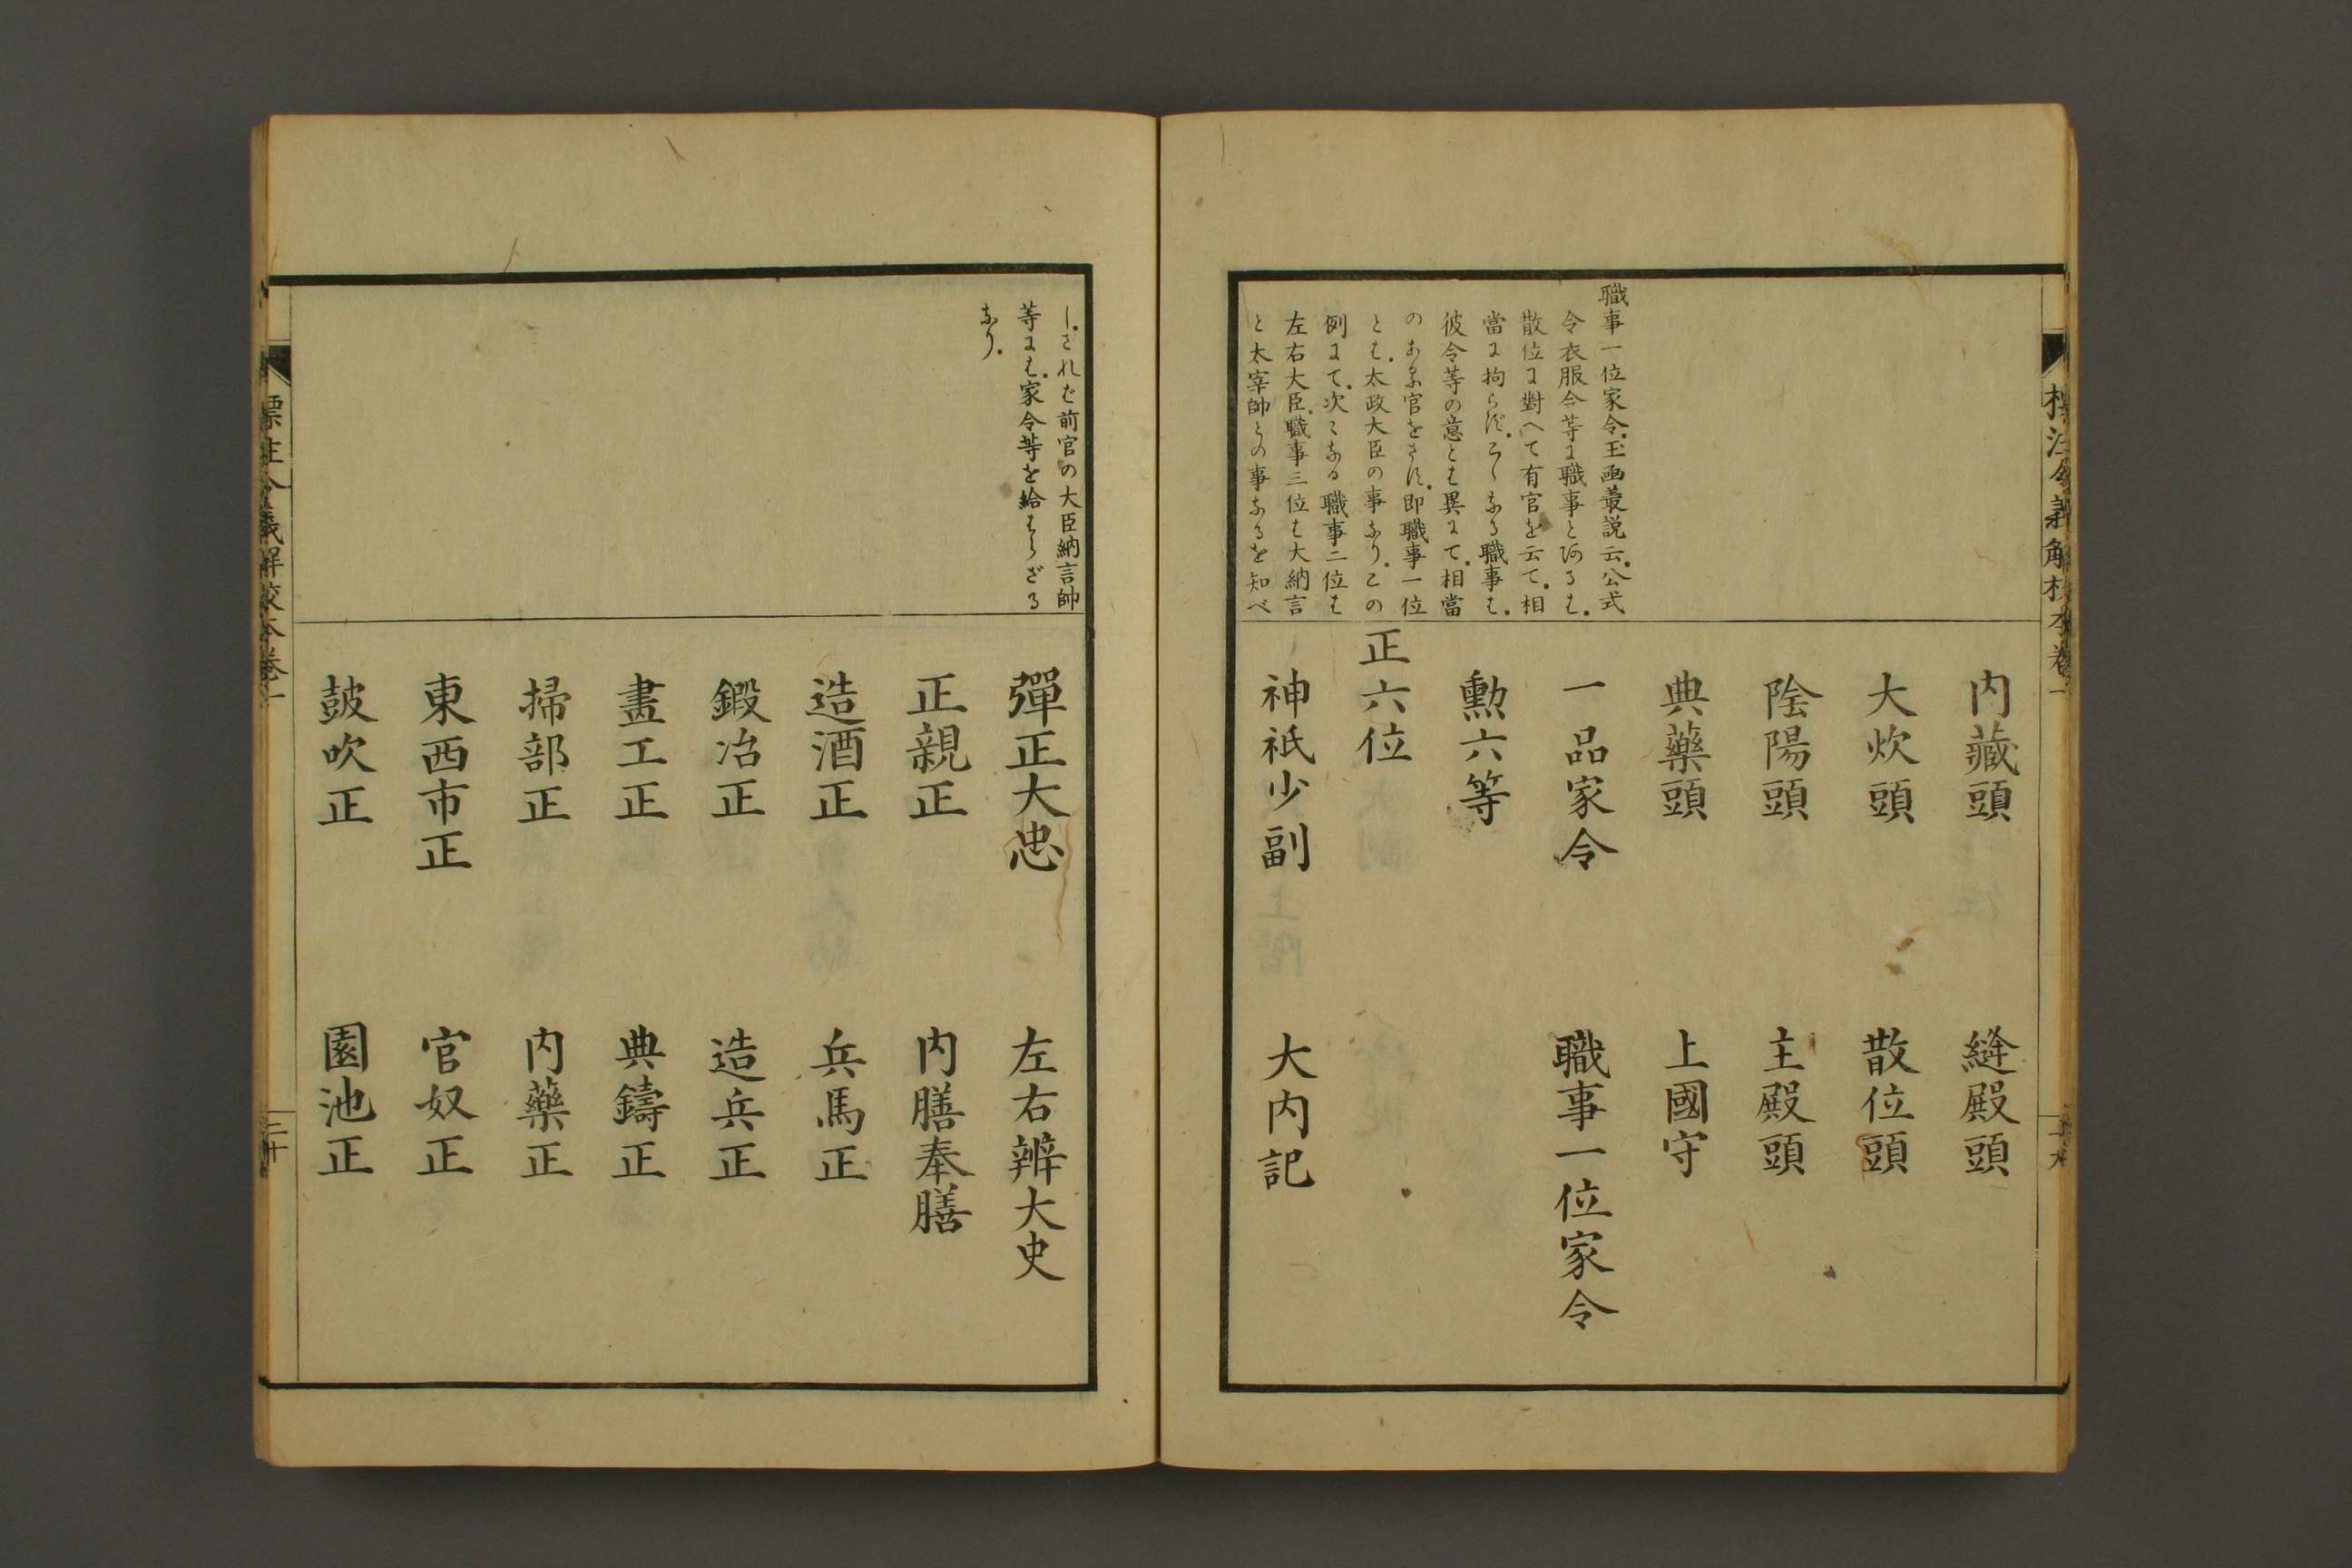 職事一位家令。玉函叢説云。公式
令衣服令等に職事とあるは。
散位に對へて有官を云て。相
當に拘らず。こゝなる職事は。
彼令等の意とは異にて。相當
のある官をさす。即職事一位
とは。太政大臣の事なり。この
例にて。次々なる職事二位は
左右大臣。職事三位は大納言
と太宰帥との事なるを知べ
内藏頭　縫殿頭
大炊頭　散位頭
陰陽頭　主殿頭
典藥頭　上國守
一品家令　職事一位家令
勲六等
正六位
神祇少副　大内記
し。されば前官の大臣納言帥
等には。家令等を給はらざる
なり。
彈正大忠　左右辨大史
正親正　内膳奉膳
造酒正　兵馬正
鍛冶正　造兵正
畫工正　典鑄正
掃部正　内藥正
東西市正　官奴正
鼓吹正　園池正
標注令義解校本卷一
二十